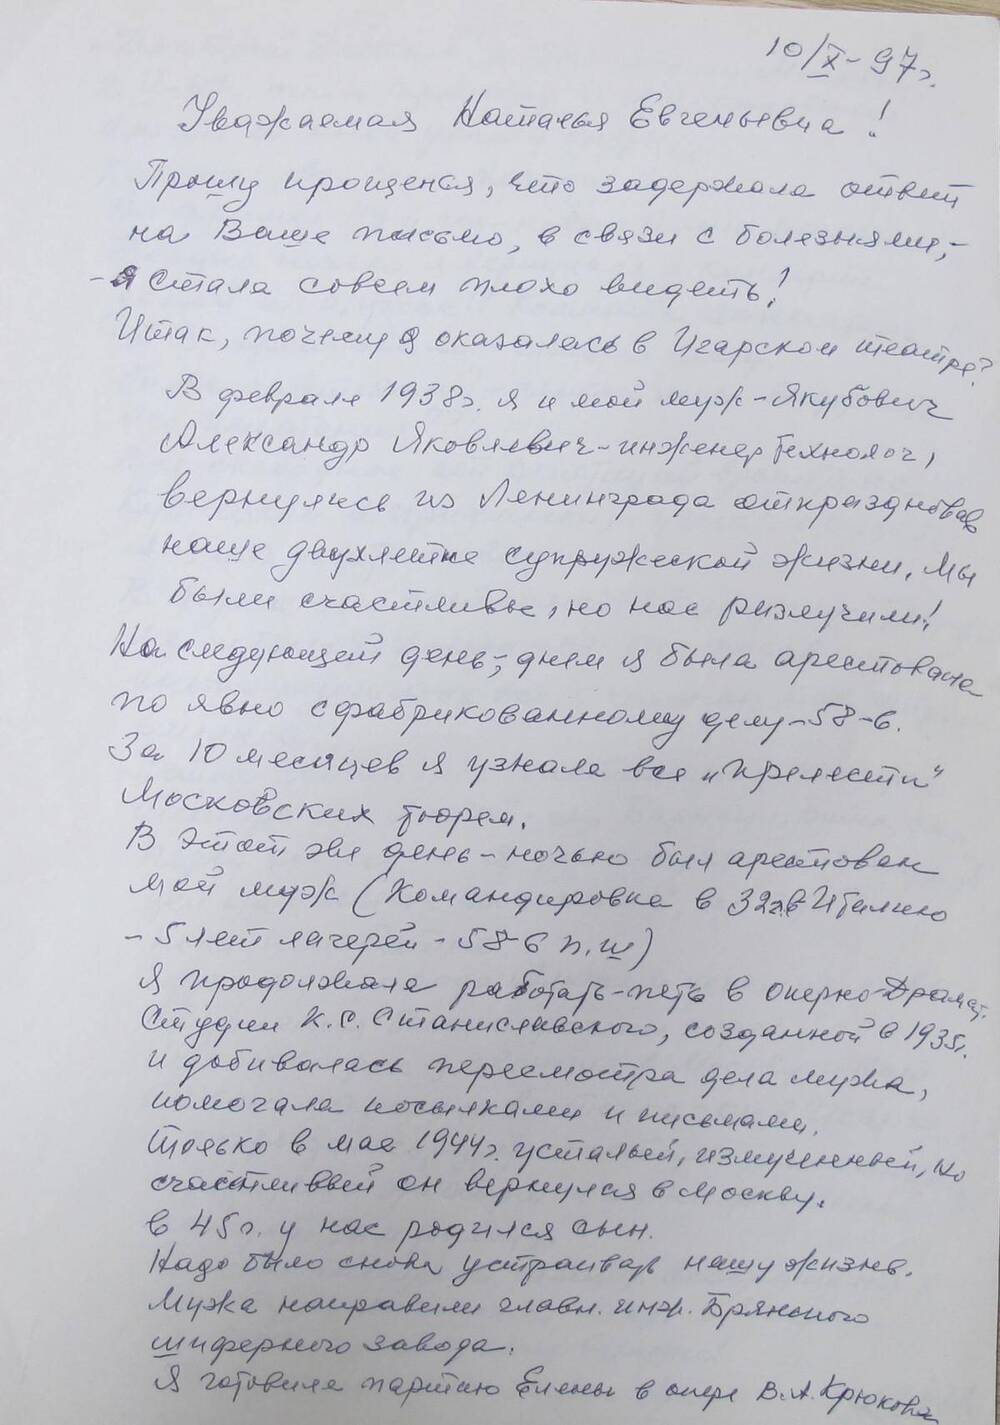 10/X-97г.
Уважаемая Наталья Евгеньевна!
Прошу прощения, что задержала ответ
на Ваше письмо, в связи с болезнями,-
- я стала совсем плохо видеть!
Итак, почему я оказалась в Игарском театре?
В феврале 1938г. я и мой муж - Якубович
Александр Яковлевич - инженер технолог,
вернулись из Ленинграда отпраздновав
наше двухлетие супружеской жизни. Мы
были счастливы, но нас разлучили!
На следующей день-, днем я была арестована
по явно сфабрикованному делу - 58-6.
За 10 месяцев я узнала все „прелести"
Московских тюрем.
В этот же день - ночью был арестован
мой муж (Командировка в 32г.в Италию
- 5 лет лагерей - 58-6 п.ш)
Я продолжала работать-петь в оперно-Драмат.
Студии К.С. Станиславского, созданной в 1935г.
и добивалась пересмотра дела мужа,
помогала посылками и письмами.
Только в мае 1944г. усталый, измученный, но
счастливый он вернулся в Москву.
в 45г. у нас родился сын.
Надо было снова устраивать нашу жизнь.
Мужа направили главн. инж. Брянского
шиферного завода.
Я готовила партию Елены в опере В.А. Крюкова